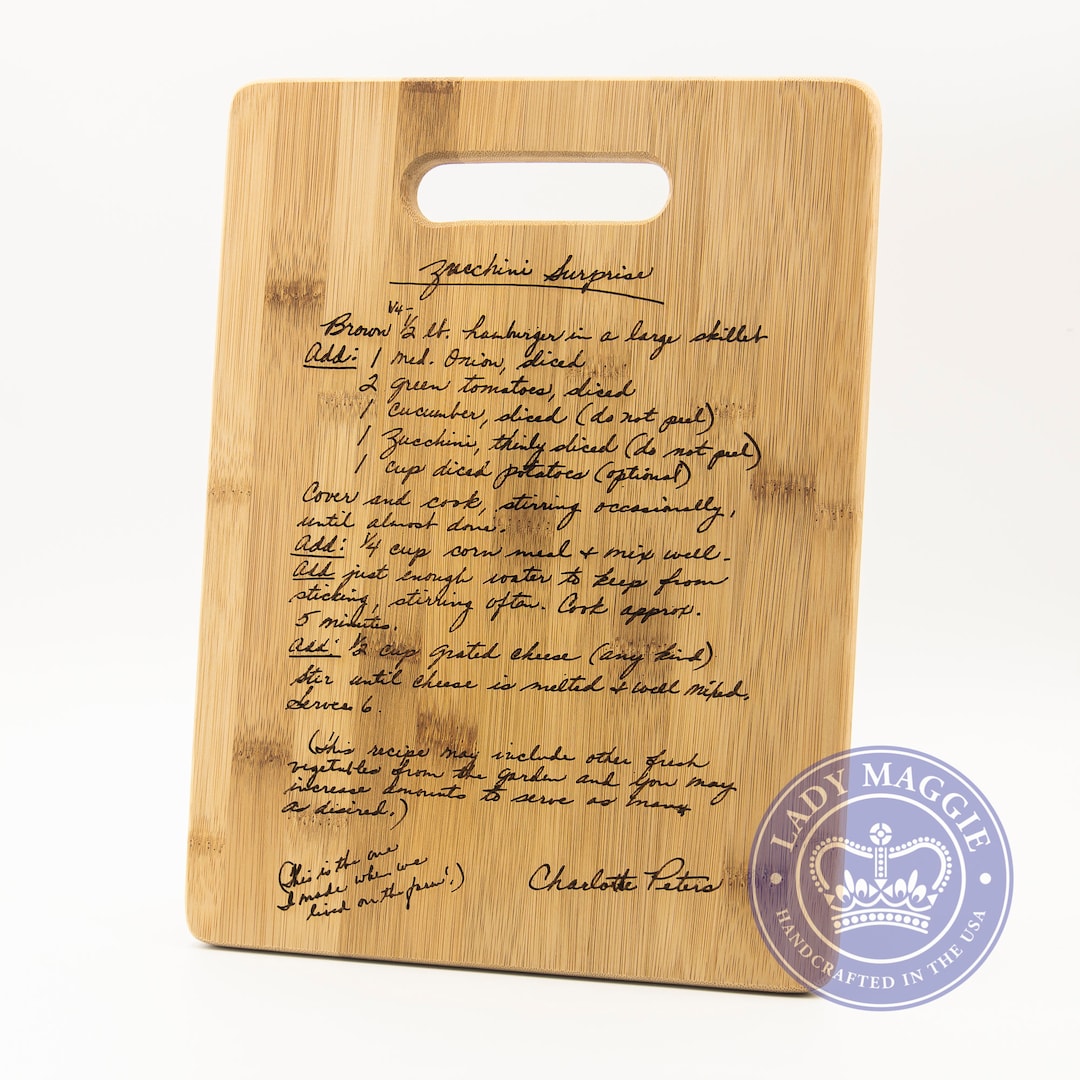 Zucchini Surprise
1/4 -
Brown 1/2 lb. hamburger in a large skillet
Add: 1 med. Onion, sliced
2 green tomatoes, sliced
1 cucumber, sliced (do not peel)
1 Zucchini, thinly sliced (do not peel)
1 cup diced potatoes (optional)
Cover and cook, stirring occasionally,
until almost done.
Add: 1/4 cup corn meal & mix well.
Add just enough water to keep from
sticking, stirring often. Cook approx.
5 minutes.
Add: 1/2 cup grated cheese (any kind)
Stir until cheese is melted & well mixed.
Serves 6.
(This recipe may include other fresh
vegetables from the garden and you may
increase amounts to serve as many
as desired.)
(This is the one
I made when we
lived on the farm!)
Charlotte Peters
LADY MAGGIE
HANDCRAFTED IN THE USA